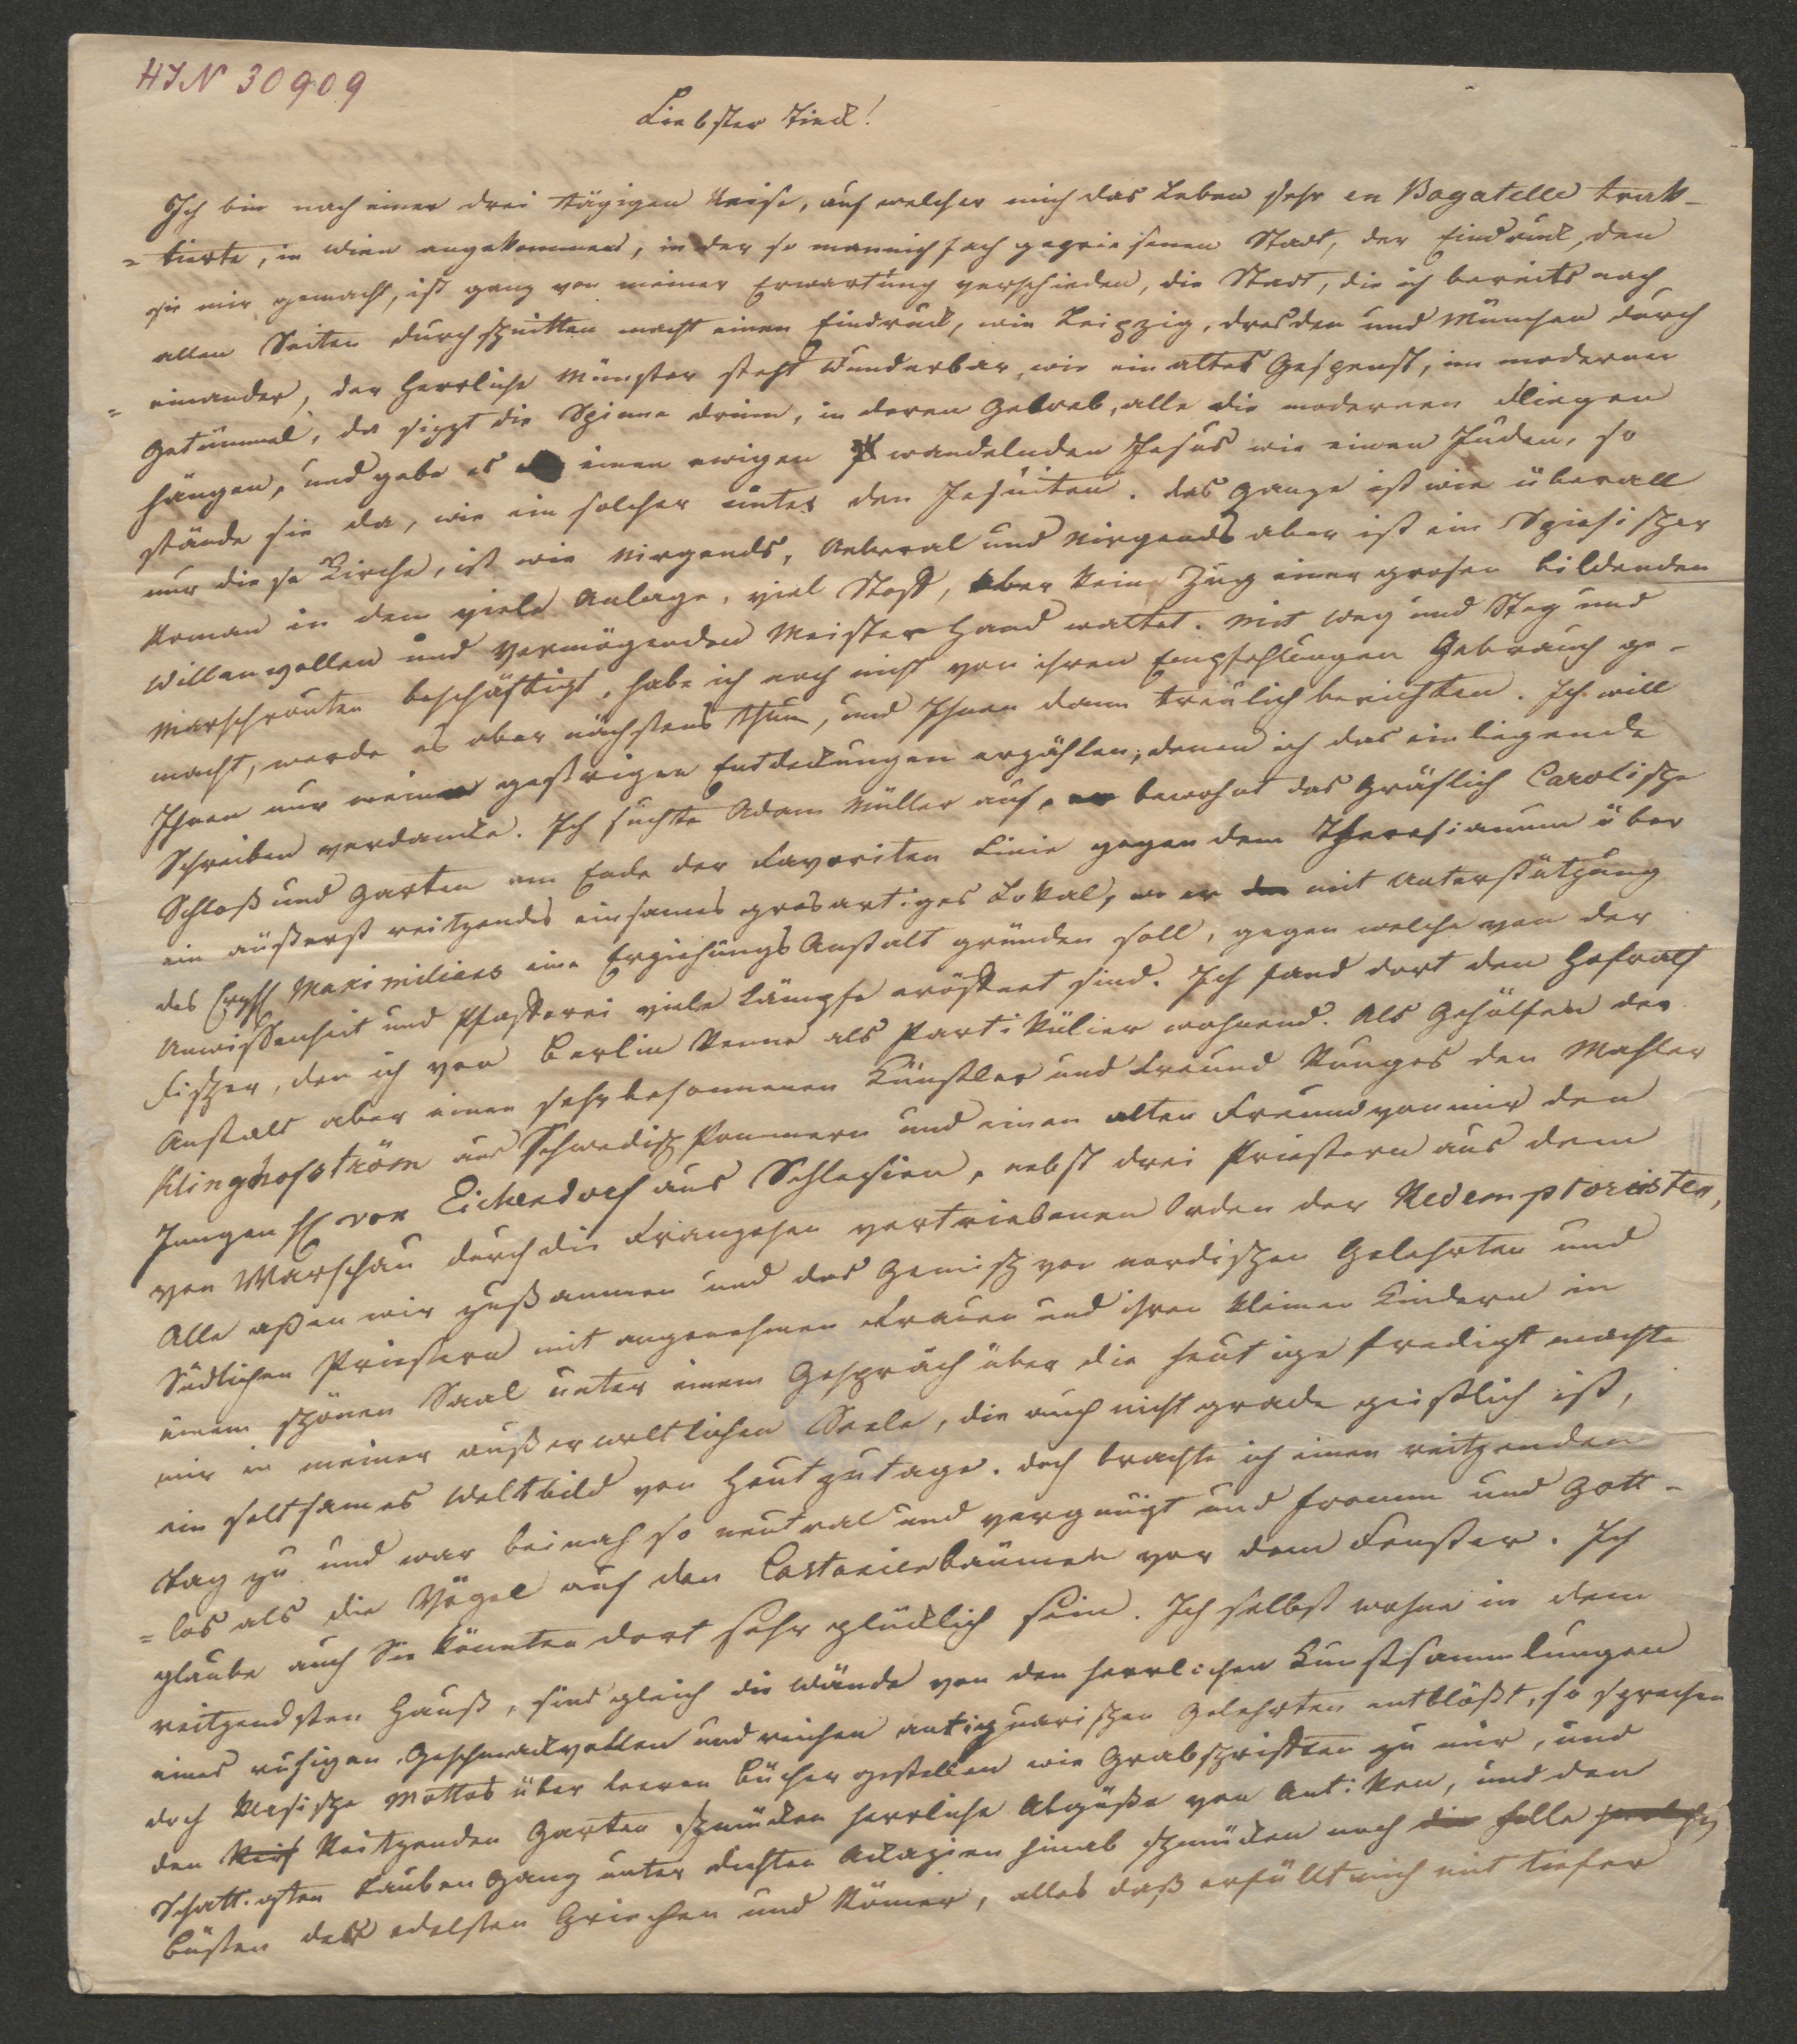 HIN 30909
Liebster Tieck!
Ich bin nach einer drei tägigen Reise, auf welcher mich das Leben sehr en Bagatelle trak-
=tierte, in Wien angekommen, in der so mannichfach gepriesenen Stadt, der Eindruck, den
sie mir gemacht, ist ganz von meiner Erwartung verschieden, die Stadt, die ich bereits nach
allen Seiten durchschnitten macht einen Eindruck, wie Leipzig, Dresden und München durch
=einander, der herrliche Münster steht wunderbar, wie ein altes Gespenst, im modernen
Getümmel, da sizzt die Spinne drinn, in deren Geweb, alle die modernen Fliegen
hängen, und gebe es einen ewigen wandelnden Jesus wie einen Juden, so
stände sie da, wie ein solcher unter den Jesuiten. Das Ganze ist wie überall
nur diese Kirche, ist wie Nirgends, Ueberal und Nirgends aber ist ein Spiesischer
Roman in dem viele Anlage, viel Stoff, aber keine Zug einer grosen bildenden
Willenvollen und Vermögenden Meisterhand waltet. Mit Weg und Steg und
Marschrouten beschäftigt, habe ich noch nicht von ihren Empfehlungen Gebrauch ge-
macht, werde es aber nächstens thun, und Ihnen dann treulich berichten. Ich will
Ihnen nur meine gestrigen Entdeckungen erzählen, denen ich das einliegende
Schreiben verdancke. Ich suchte Adam Müller auf, er bewohnt das Gräflich Carolische
Schloß und Garten am Ende der Favoriten Linie gegen dem Theresianum über
ein äußerst reitzendes einsames grosartiges Lokal, wo er mit Unterstützung
des Erzh Maximilians eine ErziehungsAnstalt gründen soll, gegen welche von der
Unwissenheit und Pfafferei viele Kämpfe eröffnet sind. Ich fand dort den Hofrath
Fischer, den ich von Berlin kenne als Partikülier wohnend. Als Gehülfen der
Anstalt aber einen sehr besonnenen Künstler und Freund Runges den Mahler
Klinghofström aus Schwedisch Pommern und einen alten Freund von mir den
Jungen H von Eichendorf aus Schlesien, nebst drei Priestern aus dem
von Warschau durch die Franzosen vertriebenen Orden der Redemptoristen,
Alle aßen wir zußammen und das Gemisch von nordischen Gelehrten und
Südlichen Priestern mit angenehmen Frauen und ihren kleinen Kindern in
einem schönen Saal unter einem Gespräch über die heutige Predigt machte
mir in meiner außerweltlichen Seele, die auch nicht grade geistlich ist,
ein seltsames Weltbild von Heutzutage. Doch brachte ich einen reitzenden
Tag zu und war beinah so neutral und vergnügt und fromm und Gott-
=los als die Vögel auf den Castanienbäumen vor dem Fenster. Ich
glaube auch Sie könnten dort sehr glücklich sein. Ich selbst wohne in dem
reitzendsten Hauß, sind gleich die Wände von den herrlichen Kunstsammlungen
eines ruhigen Geschmackvollen und reichen antiquarischen Gelehrten entblößt, so sprechen
doch klasische Mottos über leeren Büchergestellen wie Grabschriften zu mir, und
den Reitzenden Garten schmücken herrliche Abgüße von Antiken, und den
Schattigsten Lauben Gang unter dichten Akazien hinab schmücken noch die
Büsten der edelsten Griechen und Römer, alles daß erfüllt mich mit tiefer